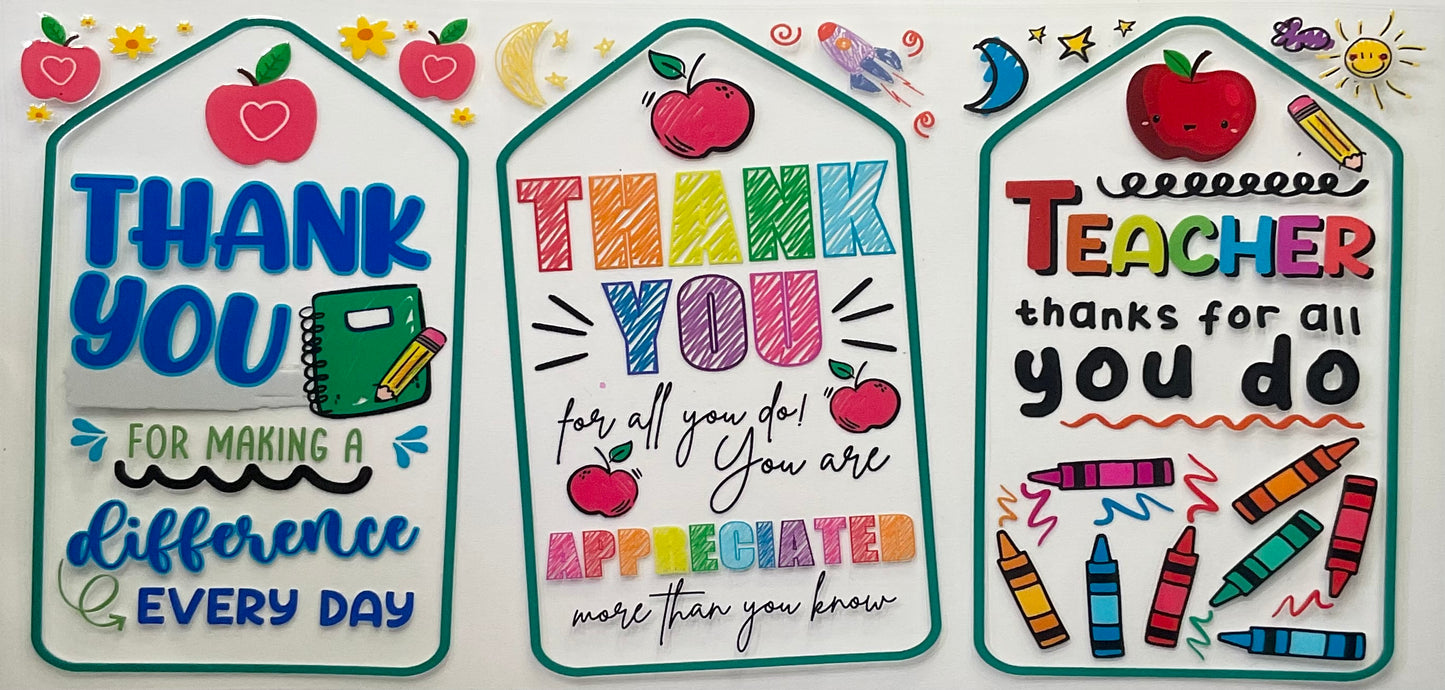 THANK
YOU
FOR MAKING A
difference
EVERY DAY
THANK
YOU
for all you do!
You are
APPRECIATED
more than you know
TEACHER
thanks for all
you do